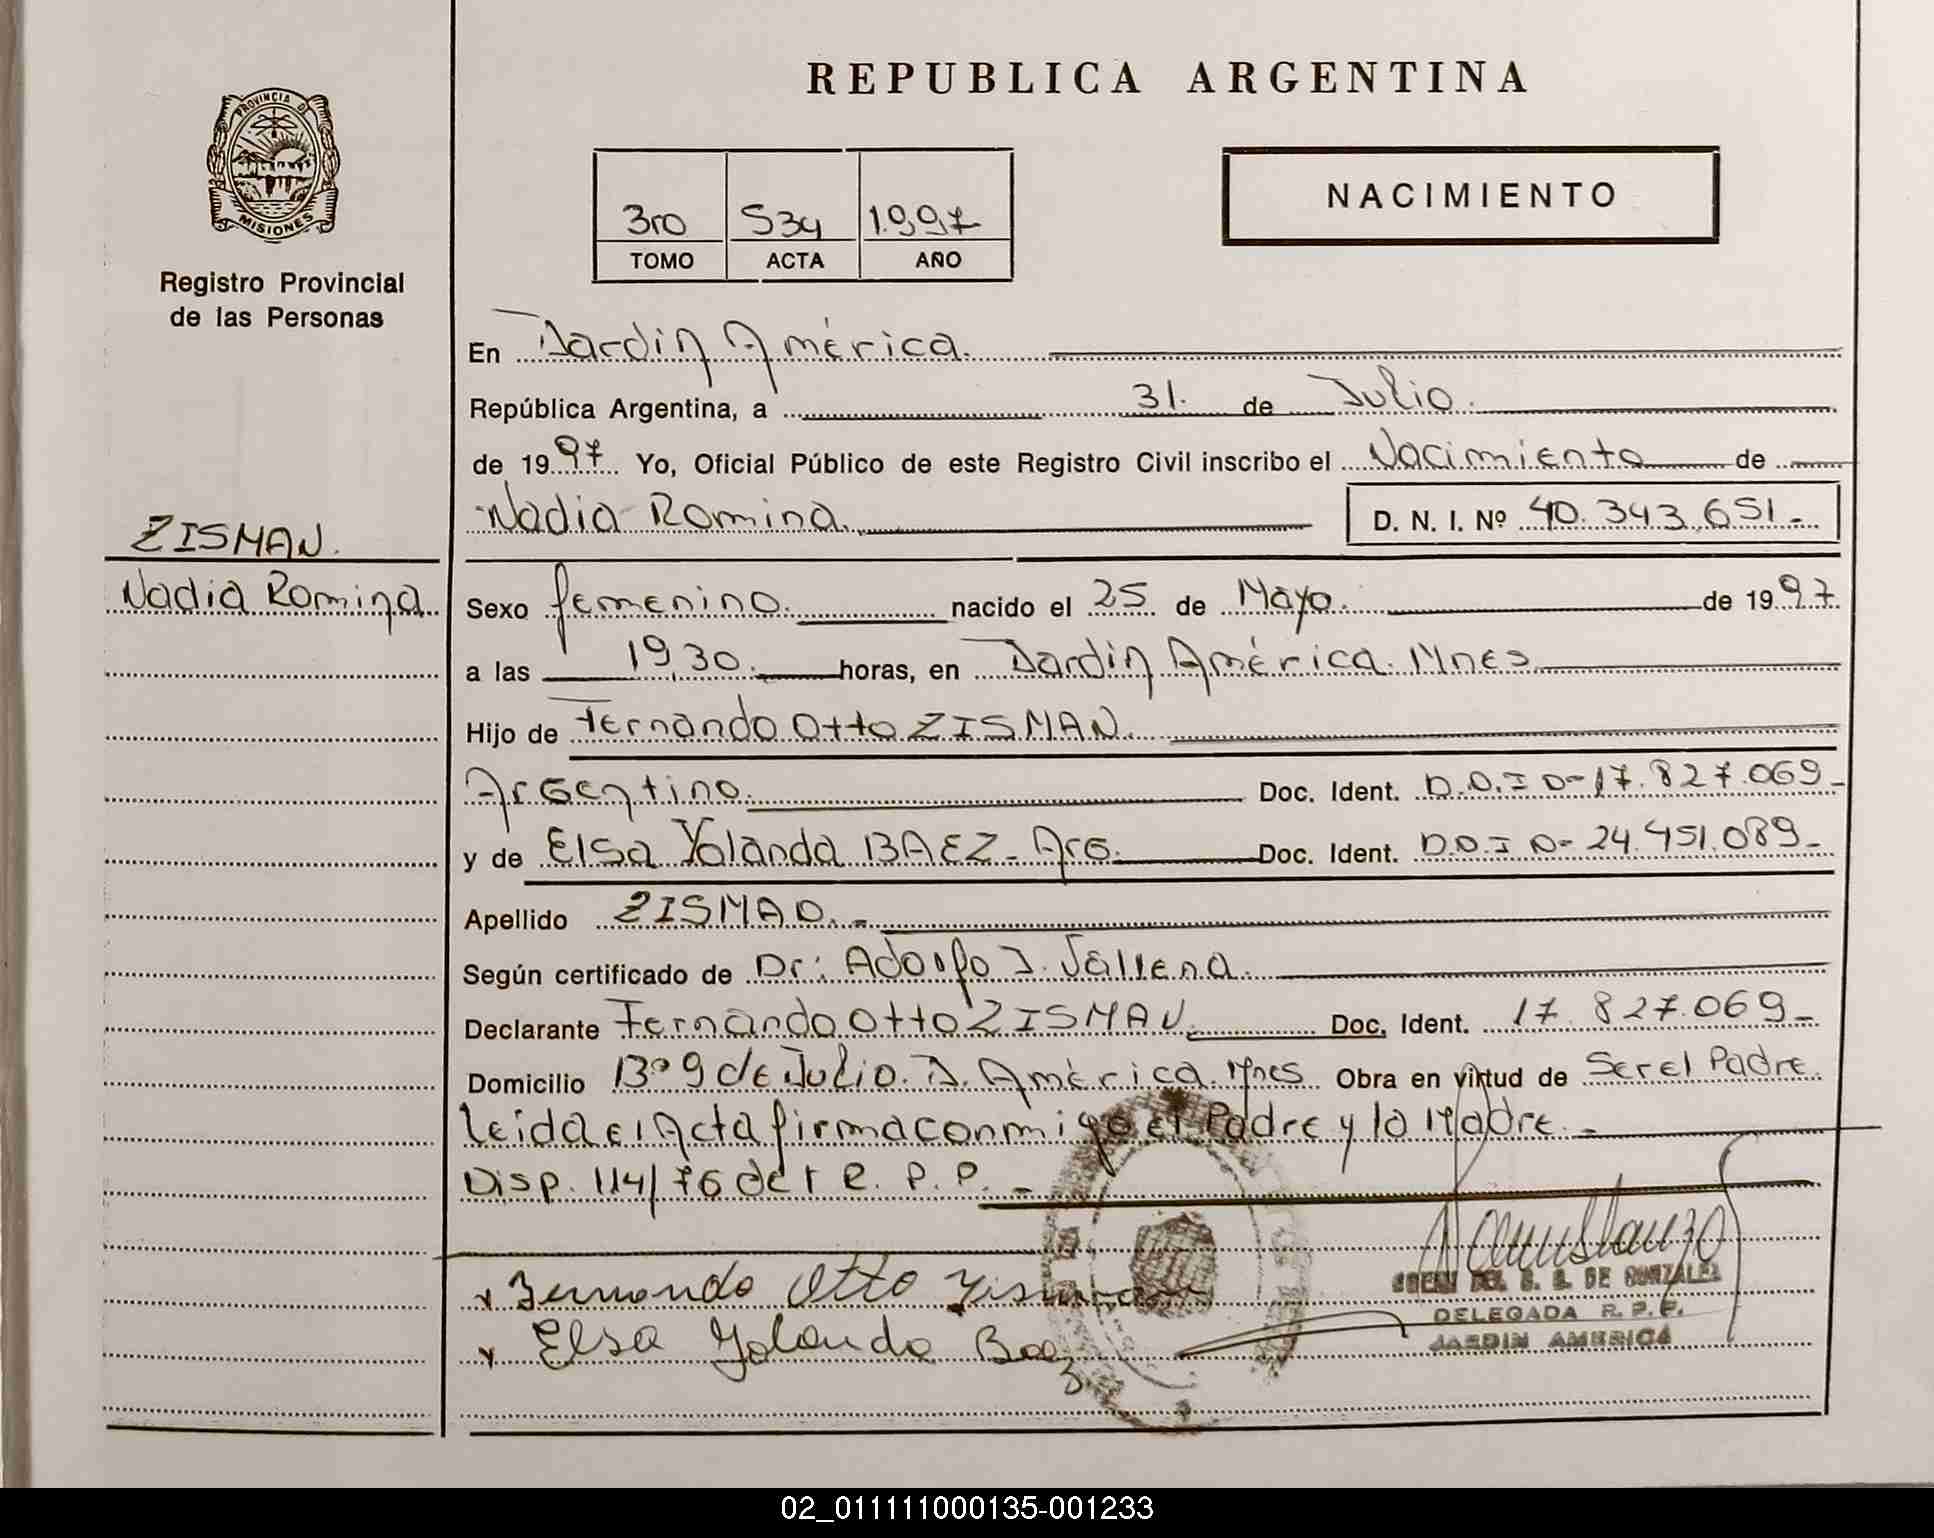 REPUBLICA ARGENTINA
PROVINCIA DE
MISIONES
Registro Provincial
de las Personas
3ro 534 1.997
TOMO ACTA AÑO
NACIMIENTO
En Jardin América.
República Argentina, a 31. de Julio.
de 1997 Yo, Oficial Público de este Registro Civil inscribo el Nacimiento de
Nadia Romina. D. N. I. Nº 40.343.651.-
ZISMAN.
Nadia Romina.
Sexo femenino. nacido el 25 de Mayo. de 1997.
a las 19,30. horas, en Jardin América. Mnes
Hijo de Fernando Otto ZISMAN.
Argentino. Doc. Ident. D.N.I N- 17.827.069-
y de Elsa Yolanda BAEZ- Arg. Doc. Ident. D.N.I N- 24.451.089-
Apellido ZISMAN.-
Según certificado de Dr: Adolfo J.
Declarante Fernando Otto ZISMAN. Doc. Ident. 17.827.069-
Domicilio Bº 9 de Julio. J. América. Mnes Obra en virtud de Ser el Padre.
Leida el Acta firma conmigo el Padre y la Madre.-
Disp. 114/76 del R. P. P.-
Fernando Otto Zisman
Elsa Yolanda Baez
DE GONZALEZ
DELEGADA R. P. P.
JARDIN AMERICA
02_011111000135-001233